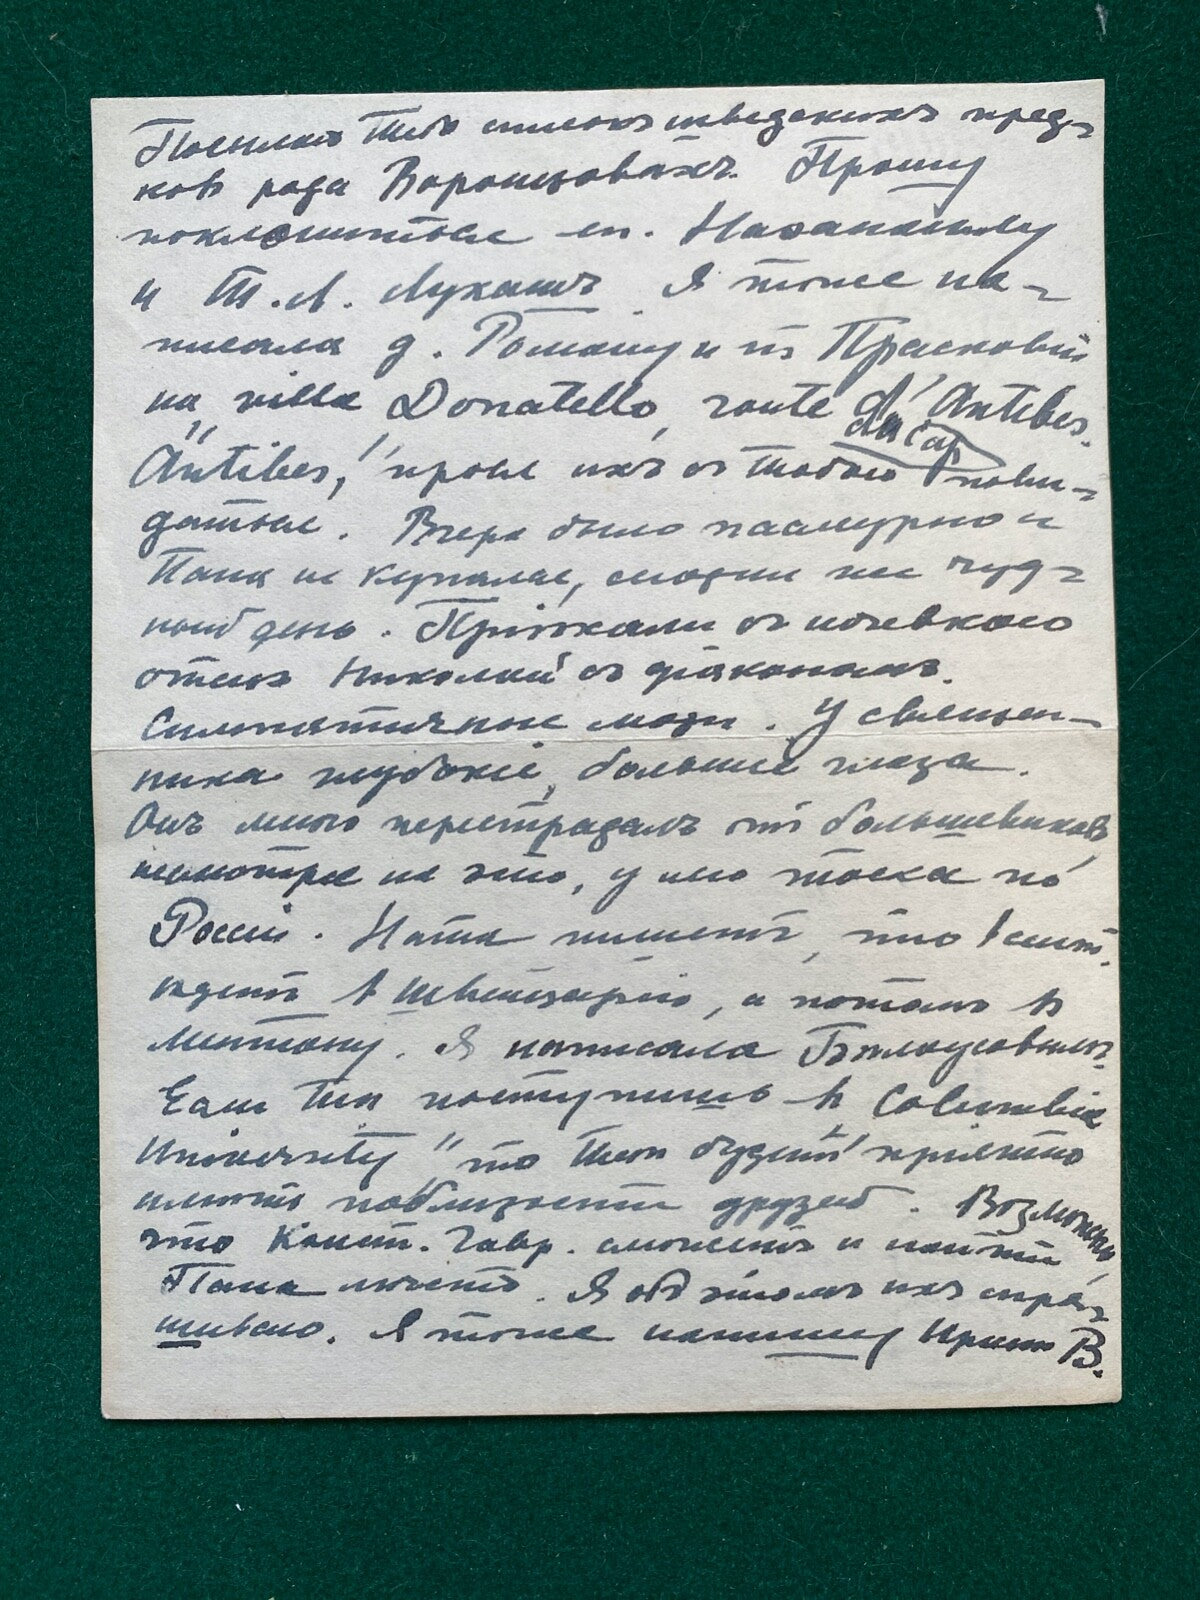 Посылаю Тебѣ списокъ шведскихъ пред-
ковъ рода Воронцовыхъ. Прошу
поклониться еп.
и Т. Л. Лукашъ. Я тоже на-
писала д. Ромашу и тѣ Прасковьи
на "villa Donatello, route d'Antibes.
Antibes," прося ихъ съ Тобою пови-
даться. Вчера было пасмурно и
Папа не купался, сегодня же чуд-
ный день. Пріѣзжали съ
отецъ Николай съ діакономъ.
Симпатичные люди. У священ-
ника глубокіе, большіе глаза.
Онъ много перестрадалъ отъ большевиковъ,
несмотря на это, у него тоска по
Россіи. Ната пишетъ, что 1 сент.
ѣдетъ въ Швейцарію, а потомъ въ
Ментону. Я написала Бѣлоусовымъ.
Если Ты поступишь въ "Columbia
University" то Тебѣ будетъ пріятно
имѣть поблизости друзей. Возможно,
что Конст. Гавр. сможетъ и найти
Папа мѣсто. Я объ этомъ ихъ спра-
шиваю. Я тоже напишу Иринѣ В.